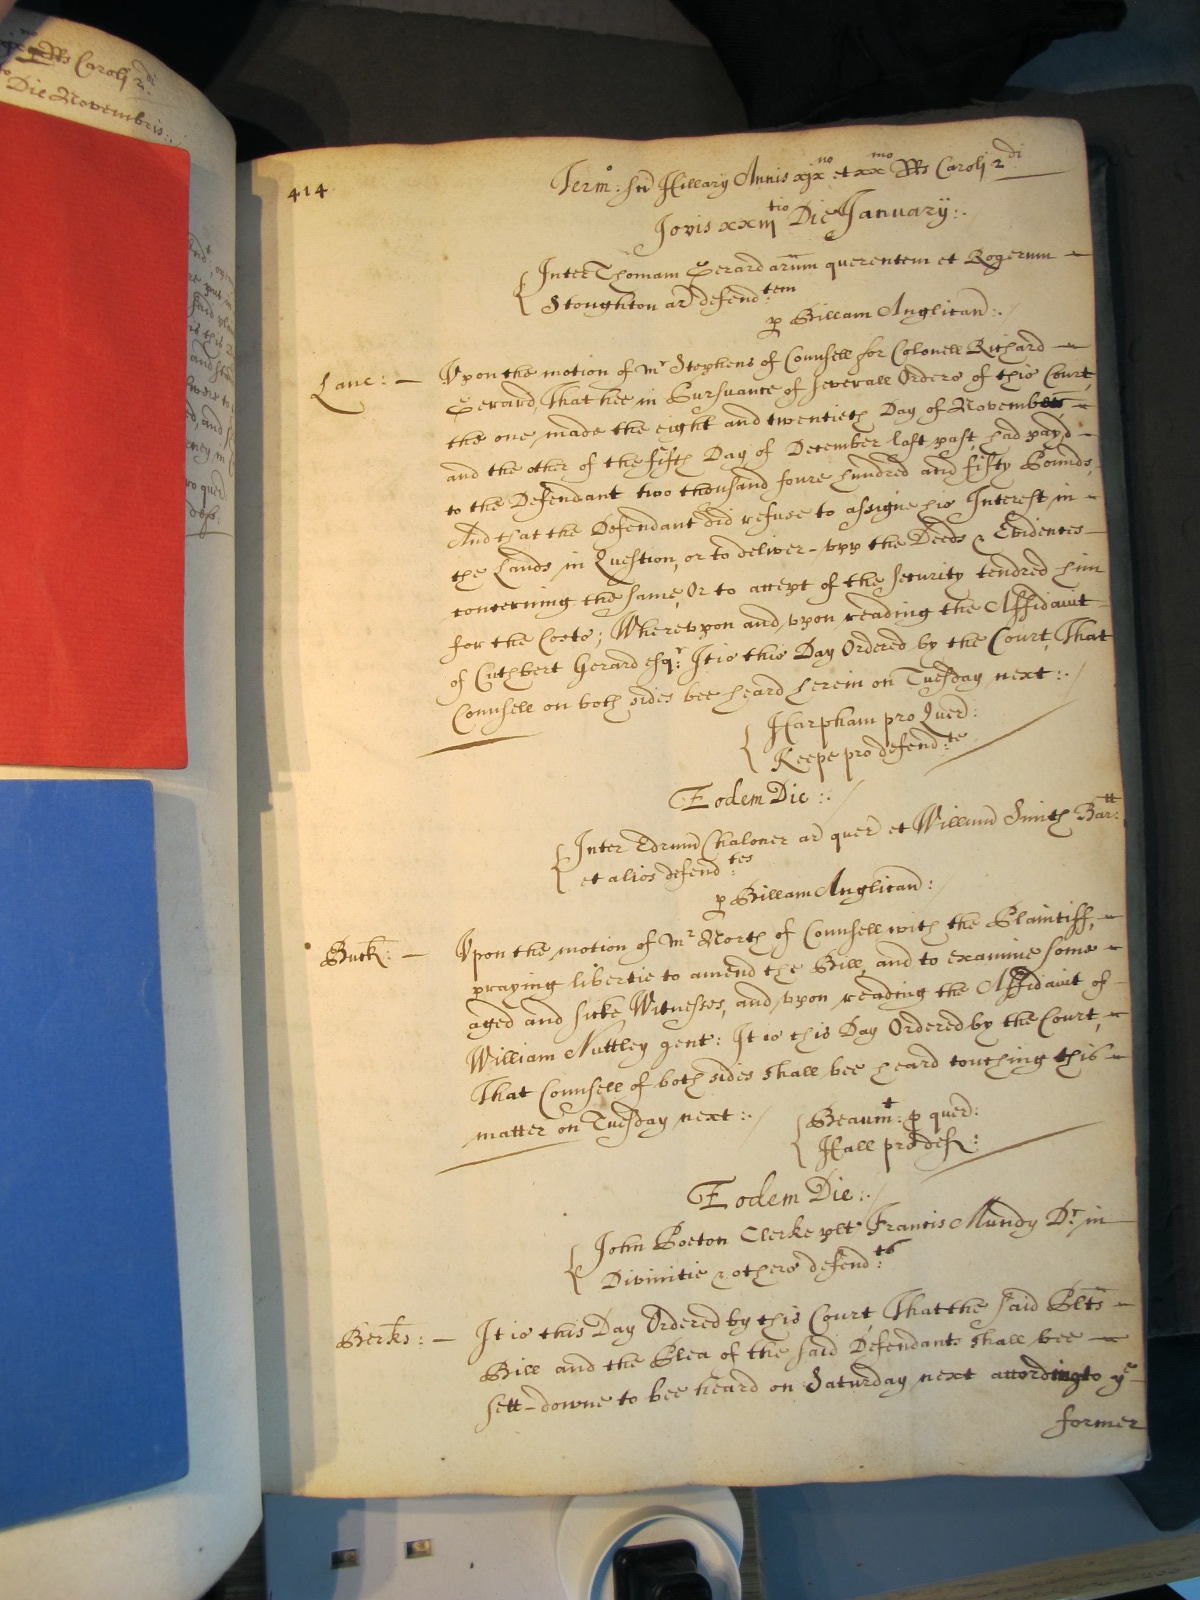 RRs Caroli 2di
Die Novembris:
414
Term: sci Hillary Annis xixno et xxmo RRs Caroli 2di
Jovis xxiijtio Die January:.
Inter Thomam Gerard arum querentem et Rogerum
Stoughton ar defend:tem
p Billam Anglican:.
Lanc: — Upon the motion of Mr Stephens of Counsell for Colonell Richard
Gerard, That hee in Pursuance of severall Orders of this Court,
the one made the eight and twentieth Day of November
and the other of the fifth Day of December last past, had payd
to the Defendant two thousand foure hundred and fifty Pounds,
And that the Defendant did refuse to assigne his Interest in
the Lands in Question, or to deliver-upp the Deeds & Evidences
concerning the same, Or to accept of the Security tendred him
for the Costs; Whereupon and upon reading the Affidavit
of Cuthbert Gerard Esqr: It is this Day Ordered by the Court, That
Counsell on both sides bee heard herein on Tuesday next:.
Harpham pro Quer:
Keepe pro defend:te
Eodem Die:.
Inter Edmund Chaloner ar quer et Willum Smith Bartt:
et alios defend:tes
p Billam Anglican:
Buck: — Upon the motion of Mr North of Counsell with the Plaintiff,
praying libertie to amend the Bill, and to examine some
aged and sicke Witnesses, and upon reading the Affidavit of
William Nuttley gent: It is this Day Ordered by the Court,
That Counsell of both sides shall bee heard touching this
matter on Tuesday next:.
Beaumt: p quer:
Hall pro def:
Eodem Die:.
John Boston Clerke plt Francis Mundy Dr in
Divinitie & others defend:ts
Berks: — It is this Day Ordered by this Court, That the said Plts
Bill and the Plea of the said Defendants shall bee
sett-downe to bee heard on Saturday next according to ye
former